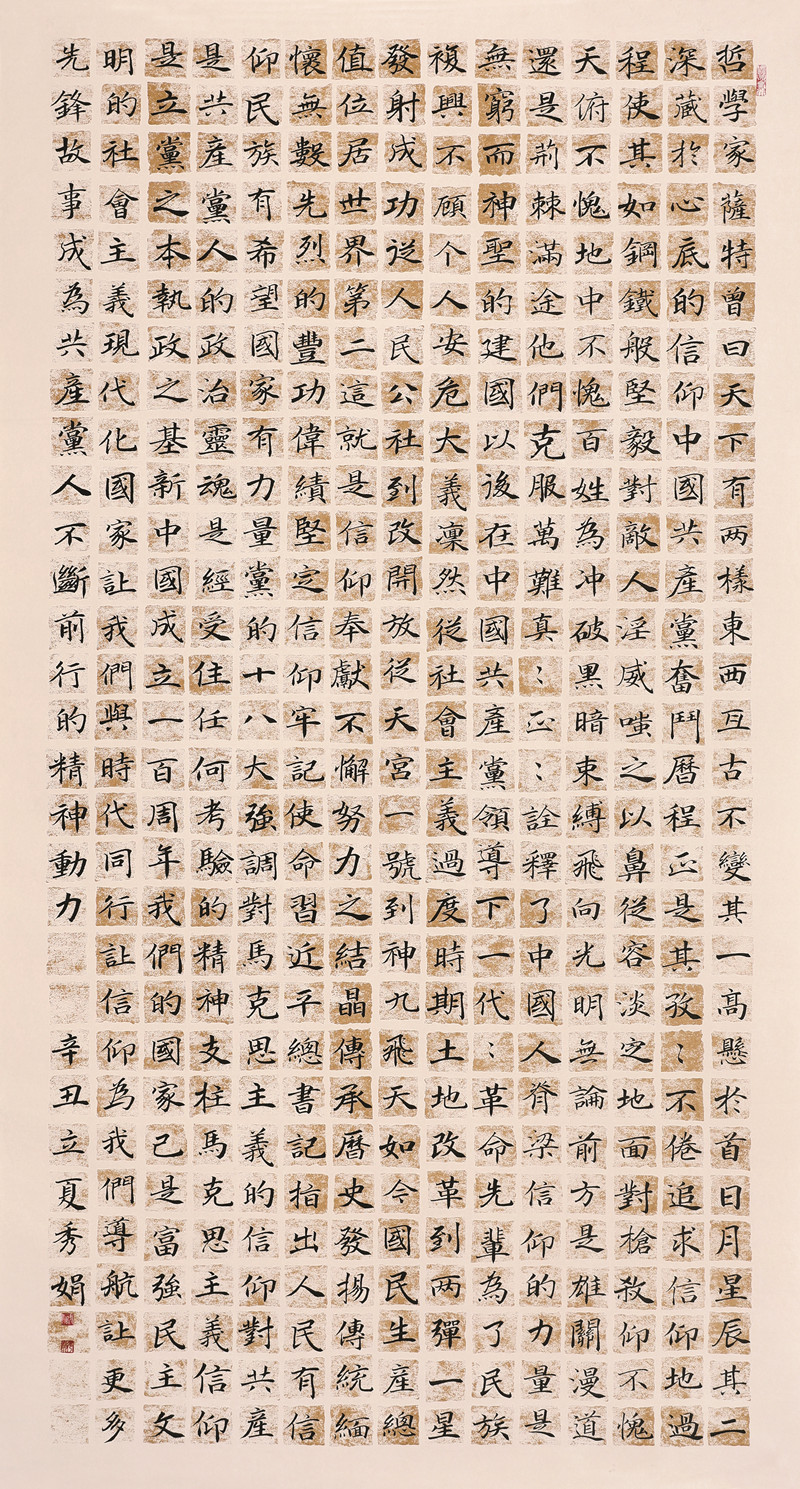 哲學家薩特曾曰天下有两樣東西亙古不變其一高懸於首日月星辰其二
深藏於心底的信仰中國共產黨奮鬥曆程正是其孜⺀不倦追求信仰地過
程使其如鋼鐵般堅毅對敵人淫威嗤之以鼻從容淡定地面對槍殺仰不愧
天俯不愧地中不愧百姓為冲破黑暗束縛飛向光明無論前方是雄關漫道
還是荊棘滿途他們克服萬難真⺀正⺀詮釋了中國人脊梁信仰的力量是
無窮而神聖的建國以後在中國共產黨領導下一代⺀革命先輩為了民族
複興不顧个人安危大義凜然從社會主義過度時期土地改革到两彈一星
發射成功從人民公社到改開放從天宮一號到神九飛天如今國民生產總
值位居世界第二這就是信仰奉獻不懈努力之結晶傳承曆史發揚傳統緬
懷無數先烈的豐功偉績堅定信仰牢記使命習近平總書記指出人民有信
仰民族有希望國家有力量黨的十八大強調對馬克思主義的信仰對共產
是共產黨人的政治靈魂是經受住任何考驗的精神支柱馬克思主義信仰
是立黨之本執政之基新中國成立一百周年我們的國家已是富強民主文
明的社會主義現代化國家讓我們與時代同行讓信仰為我們導航讓更多
先鋒故事成為共產黨人不斷前行的精神動力 辛丑立夏秀娟